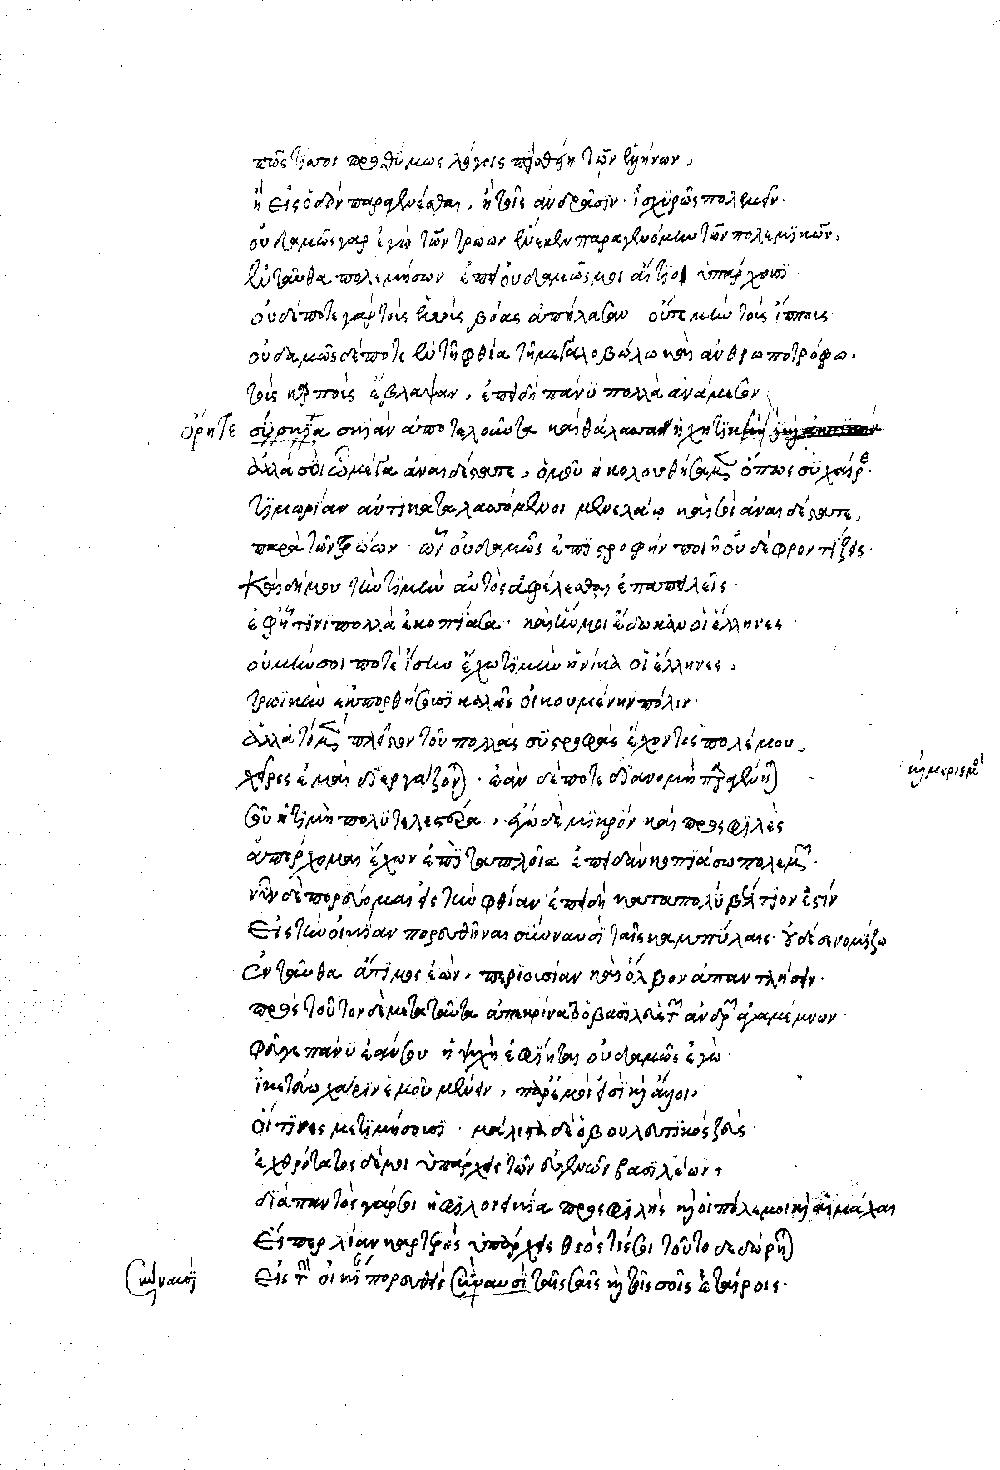 πῶς τίς σοι προθύμως λόγοις πεισθείη τῶν ἑλλήνων,
ἢ εἰς ὁδὸν παραγενέσθαι, ἢ τοῖς ἀνδράσιν ἰσχυρῶς πολεμεῖν·
οὐδαμῶς γὰρ ἐγὼ τῶν τρώων ἕνεκεν παρεγενόμην τῶν πολεμικῶν,
ἐνταῦθα πολεμήσων ἐπεὶ οὐδαμῶς μοι αἴτιοι ὑπάρχουσι
οὐδέποτε γὰρ τὰς ἐμὰς βόας ἀπήλασαν οὔτε μὴν τοὺς ἵππους
οὐδαμῶς δέποτε ἐν τῇ φθία τῇ μεγαλοβώλω καὶ ἀνθρωποτρόφω·
τοὺς καρποὺς ἔβλαψαν, ἐπειδὴ πάνυ πολλὰ ἀνάμεσον
ὄρη τε σύσκια σκιὰν ἀποτελοῦντα καὶ θάλασσα ἠχητικὴ
ἀλλὰ σοὶ ὦ μέγα ἀναιδέστατε, ὁμοῦ ἠκολουθήσαμεν ὅπως σὺ χαίρῃς
τιμωρίαν ἀντικαταλασσόμενοι μενελάω καὶ σοὶ ἀναιδέστατε,
παρὰ τῶν τρώων· ὧν οὐδαμῶς ἐπιστροφὴν ποιῆ οὐδὲ φροντίζεις·
καὶ δή μου τὴν τιμὴν αὐτὸς ἀφελέσθαι ἐπαπειλεῖς·
ἐφ᾽ ᾗτινι πολλὰ ἐκοπίασα· καί μοι ἔδωκαν οἱ ἕλληνες·
οὐ μὴν σοί ποτε ἴσην ἔχω τιμὴν ἡνίκα οἱ ἕλληνες,
τρωϊκὴν ἐκπορθήσωσι καλῶς οἰκουμένην πόλιν·
ἀλλὰ τὸ μὲν πλεῖον τοῦ πολλὰς συστροφὰς ἔχοντος πολέμου,
χεῖρες ἐμαὶ διεργάζονται· ἐὰν δέ ποτε διανομὴ παραγένηται
καὶ μερισμὸς
σοῦ ἡ τιμὴ πολυτελεστέρα, ἐγὼ δὲ μικρὸν καὶ προσφιλὲς
ἀπέρχομαι ἔχων ἐπὶ τὰ πλοῖα ἐπειδὰν κοπιάσω πολεμῶν·
νῦν δὲ πορεύομαι εἰς τὴν φθίαν ἐπειδὴ καταπολὺ βέλτιον ἐστίν
εἰς τὴν οἰκίαν πορευθῆναι σὺν ναυσὶ ταῖς καμπύλαις· οὐδέ σε νομίζω
ἐνταῦθα ἄτιμος ἐών, περιουσίαν καὶ ὄλβον ἀπαντλήσειν·
πρὸς τοῦτον δὲ μετὰ ταῦτα ἀπεκρίνατο ὁ βασιλεὺς τῶν ἀνδρῶν ἀγαμέμνων·
φεῦγε πάνυ ἐάν σου ἡ ψυχὴ ἐφίηται οὐδαμῶς ἐγὼ
ἱκετεύω χάριν ἐμοῦ μένειν, παρ᾽ ἐμοὶ εἰσὶ καὶ ἄλλοι,
οἵτινες με τιμήσουσι· μάλιστα δὲ ὁ βουλευτικὸς ζεύς·
ἐχθρότατος δέ μοι ὑπάρχεις τῶν εὐγενῶν βασιλέων,
διαπαντὸς γάρ σοι ἡ φιλονεικία προσφιλὴς καὶ οἱ πόλεμοι καὶ αἱ μάχαι
εἴπερ λίαν καρτερὸς ὑπάρχεις θεός τίς σοι τοῦτο δεδώρηται
εἰς τὴν οἰκίαν πορεύθητι σὺν ναυσὶ ταῖς σαῖς καὶ τοῖς σοῖς ἑταίροις·
σὺν ναυσὶ